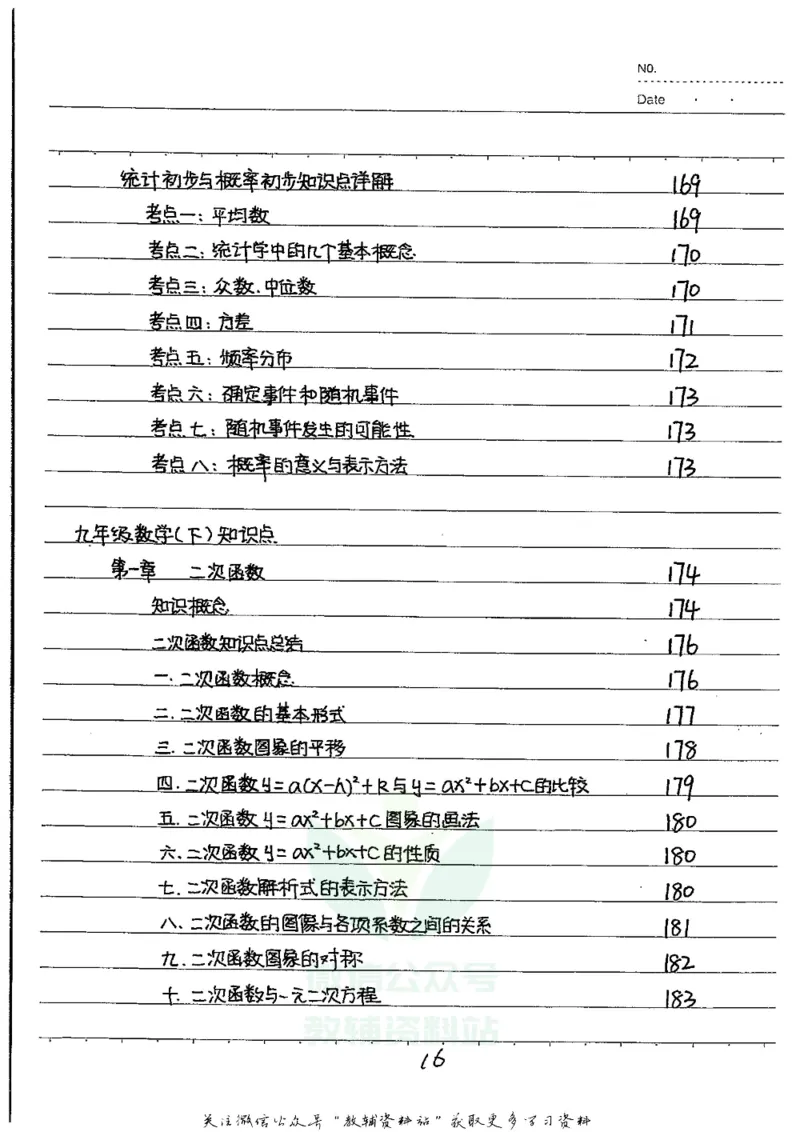 NO.
Date
统计初步与概率初步知识点详解 169
考点一：平均数 169
考点二：统计学中的几个基本概念 170
考点三：众数.中位数 170
考点四：方差 171
考点五：频率分布 172
考点六：确定事件和随机事件 173
考点七：随机事件发生的可能性 173
考点八：概率的意义与表示方法 173
九年级数学(下)知识点
第一章 二次函数 174
知识概念 174
二次函数知识点总结 176
一.二次函数概念 176
二.二次函数的基本形式 177
三.二次函数图象的平移 178
四.二次函数y=a(x-h)²+k与y=ax²+bx+c的比较 179
五.二次函数y=ax²+bx+c图象的画法 180
六.二次函数y=ax²+bx+c的性质 180
七.二次函数解析式的表示方法 180
八、二次函数的图像与各项系数之间的关系 181
九.二次函数图象的对称 182
十.二次函数与一元二次方程 183
微信公众号
教辅资料站
16
关注微信公众号"教辅资料站"获取更多学习资料